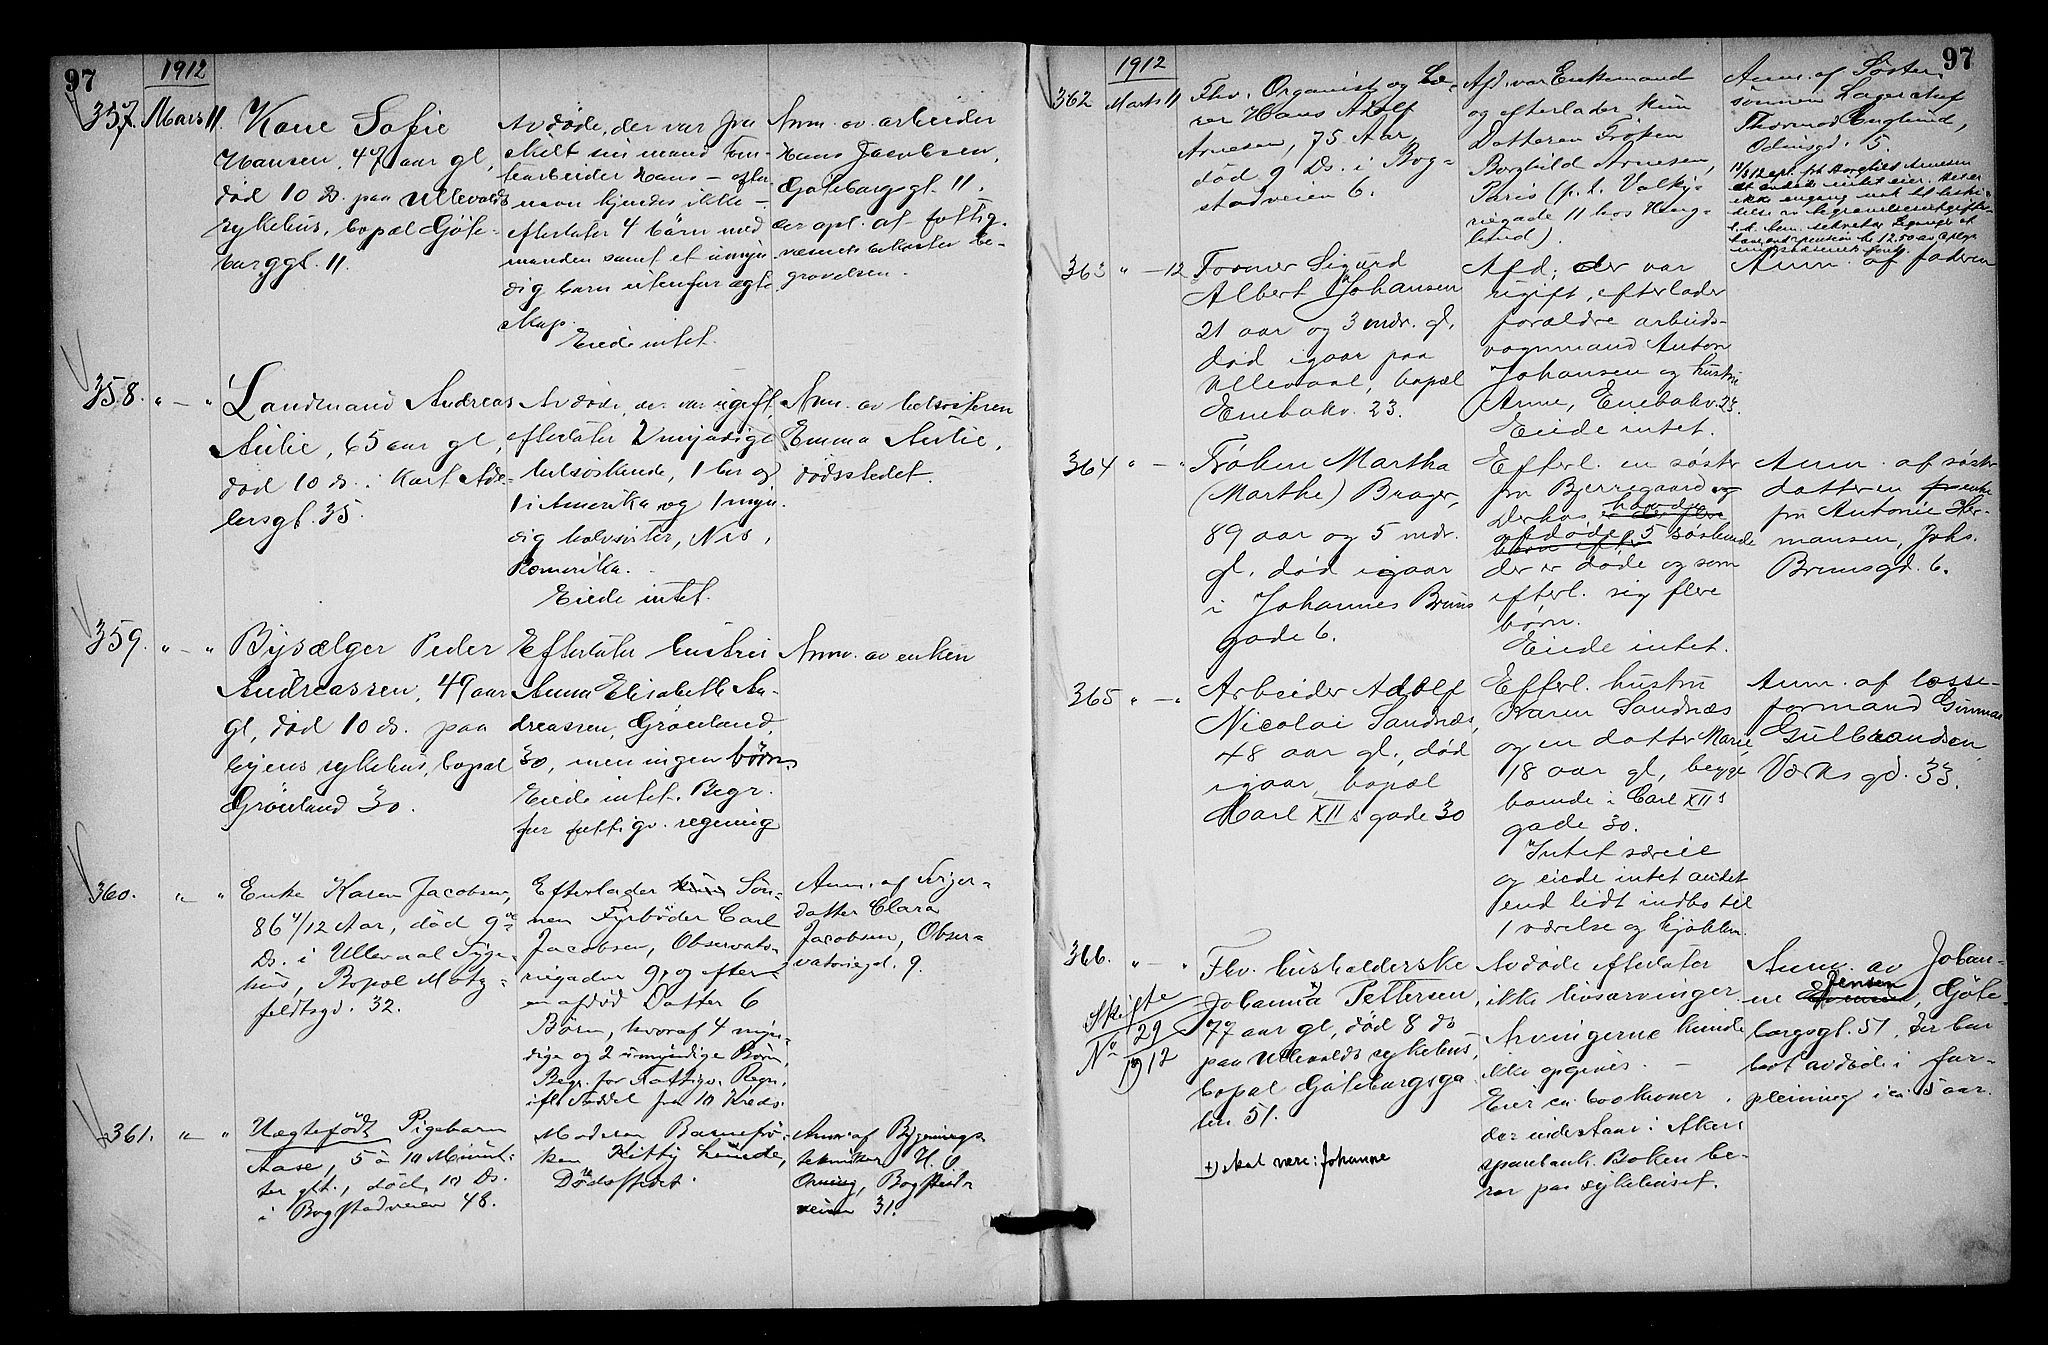 97
1912
357. Mars 11.
Kone Sofie
Hansen, 47 aar gl,
död 10 ds. paa Ullevolds
sykehus, bopæl Göte-
borggt. 11.
Avdöde, der var fra
skilt sin mand
arbeider Hans – efter
navn kjendes ikke –
efterlater 4 börn med
manden samt et umyn
dig barn utenfor ægte
skap.
Eiede intet.
Anm. av arbeider
Hans Jacobsen,
Göteborgsgt. 11.
der opl. at fattig
væsenet bekoster be-
gravelsen.
358. " — "
Landmand Andreas
Aulie, 65 aar gl,
död 10 ds. i Karl Ade-
lersgt. 35.
Avdöde, der var ugift
efterlater 2 myndige
helsöskende, 1 her og
1 i Amerika og 1 myn
dig halvsöster, Nes,
Romerike.
Eiede intet.
Anm. av helsösteren
Emma Aulie,
dödsstedet.
359. " — "
Bysælger Peder
Andreassen, 49 aar
gl, död 10 ds. paa
byens sykehus, bopæl
Grönland 30.
Efterlater hustru
Anna Elisabeth An-
dreassen, Grönland
30, men ingen börn.
Eiede intet. Begr.
for fattigv. regning
Anm. av enken
360. " "
Enke Karen Jacobsen,
86 4/12 Aar, död 9de
Ds. i Ullevaal Syge-
hus, Bopæl Motz-
feldtsgd. 32.
Efterlader kun Sön-
nen Fyrböder Carl
Jacobsen, Observato-
riegaden 9, og efter
en afdöd Datter 6
Börn, hvoraf 4 myn-
dige og 2 umyndige Börn,
Begr. for Fattigv. Regn.
iflt Seddel fra 10 Kreds.
Anm. af Sviger-
datter Clara
Jacobsen, Obser-
vatoriegd. 9.
361. " "
Uægtefödt Pigebarn
Aase, 5 à 10 Minut-
ter glt., död 10 Ds.
i Bogstadveien 48.
Moderen Barnefrö-
ken Kitty
Dödsstedet.
Anm af Bygnings-
tekniker H. O
Bogstad-
veien 31.
97
1912
362 Marts 11
Fhv. Organist og Læ-
rer Hans Adolf
Arnesen, 75 Aar,
död 9 Ds. i Bog-
stadveien 6.
Afd. var Enkemand
og efterlader kun
Datteren Fröken
Borghild Arnesen,
Paris (p. t. Valky-
riegade 11 hos Eng-
lund).
Anm. af Söster
sönnen Lagerchef
Thormod Englund,
Odinsgd. 5.
opl. frk Borghild Arnesen
at avdöde intet eier. Det er
ikke engang nok til bestri-
delse av begravelsesutgifter
363 " — 12
Former Sigurd
Albert Johansen
21 aar og 3 mdr. gl,
död igaar paa
Ullevaal, bopæl
Enebakv. 23.
Afd, der var
ugift, efterlader
forældre arbeids-
vognmand Anton
Johansen og hustru
Anne, Enebakv. 23.
Eiede intet.
Anm. af faderen
364 " — "
Fröken Martha
(Marthe) Brager,
89 aar og 5 mdr.
gl. död igaar
i Johannes Bruns
gade 6.
Efterl. en söster
fru Bjerregaard og
Derhos havde
afdöde 5 söskende
der er döde og som
efterl. sig flere
börn.
Eiede intet.
Anm. af söster
datteren enke
fru Antonie Her-
mansen, Johs.
Brunsgd. 6.
365 " — "
Arbeider Adolf
Nicolai Sandnæs,
48 aar gl, död
igaar, bopæl
Carl XII s gade 30
Efterl. hustru
Karen Sandnæs
og en datter Marie
18 aar gl, begge
boende i Carl XII s
gade 30.
Intet særeie
og eiede intet andet
end lidt indbo til
1 værelse og kjökken.
Anm. af losse-
formand Gunnar
Gulbrandsen,
Verksgd. 33.
366. " — "
Skifte
No 29/1912
Fhv. husholderske
Johanna +) Pettersen,
77 aar gl, död 8 ds
paa Ullevolds sykehus,
bopæl Göteborgsga
ten 51.
+) skal være: Johanne
Avdöde efterlater
ikke livsarvinger
Arvingerne kunde
ikke opgives. –
Eier ca. 600 kroner,
der indestaar i Akers
sparebank. Boken be-
ror paa sykehuset.
Anm. av Johan-
ne Jensen, Göte-
borgsgt. 51, der har
havt avdöde i for-
pleining i ca. 5 aar.